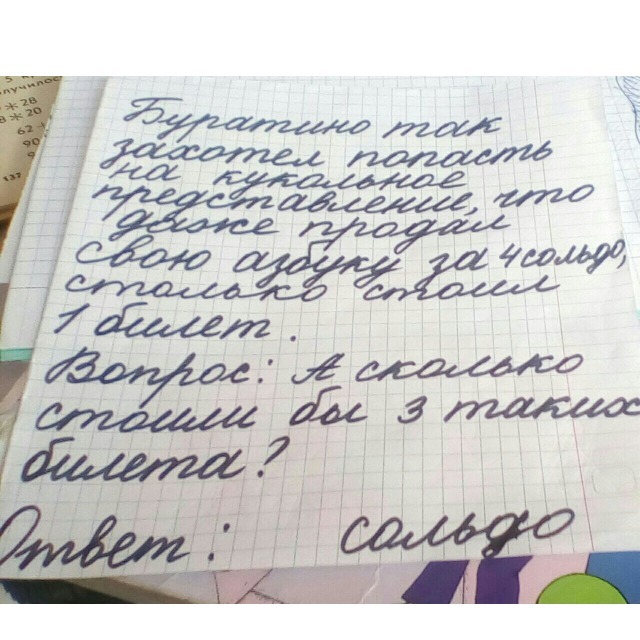 Буратино так
захотел попасть
на кукольное
представление, что
даже продал
свою азбуку за 4 сольдо,
столько стоил
1 билет.
Вопрос: А сколько
стоили бы 3 таких
билета?
Ответ: сольдо
28
8 * 20
62 +
90
9
137